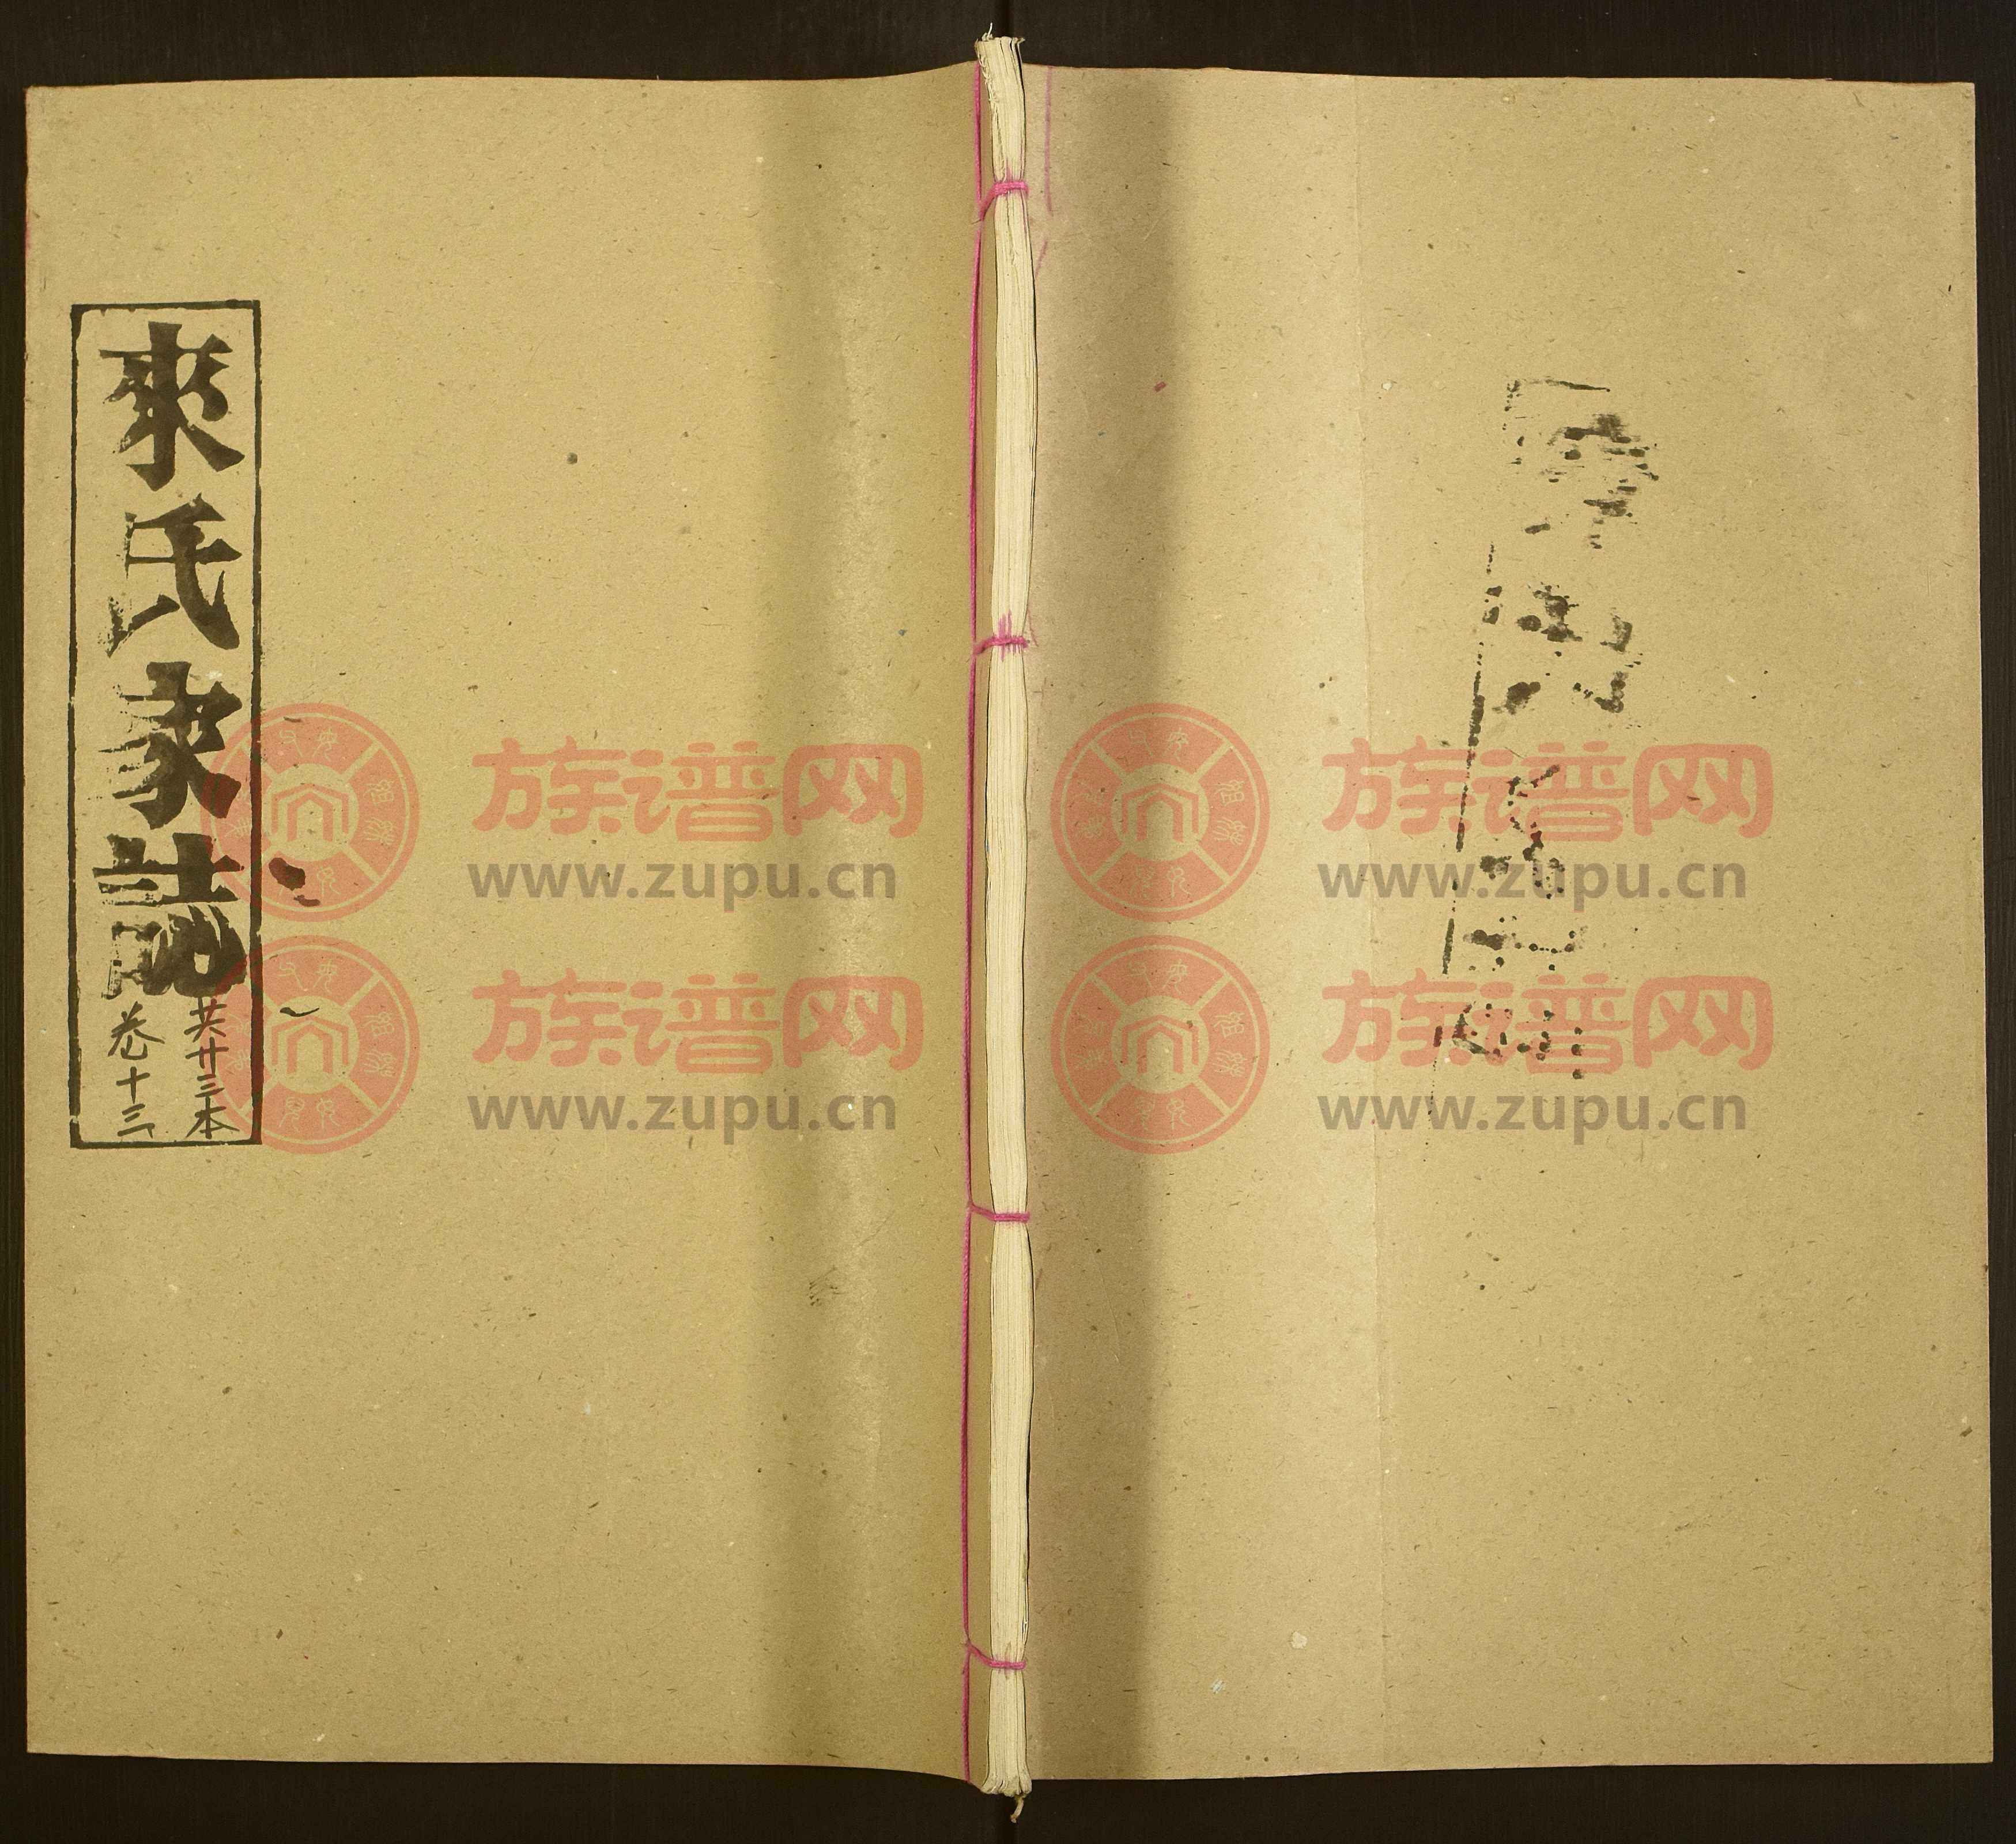 來氏家誌
共廿三本
卷十三
族谱网
www.zupu.cn
族谱网
www.zupu.cn
族谱网
www.zupu.cn
族谱网
www.zupu.cn